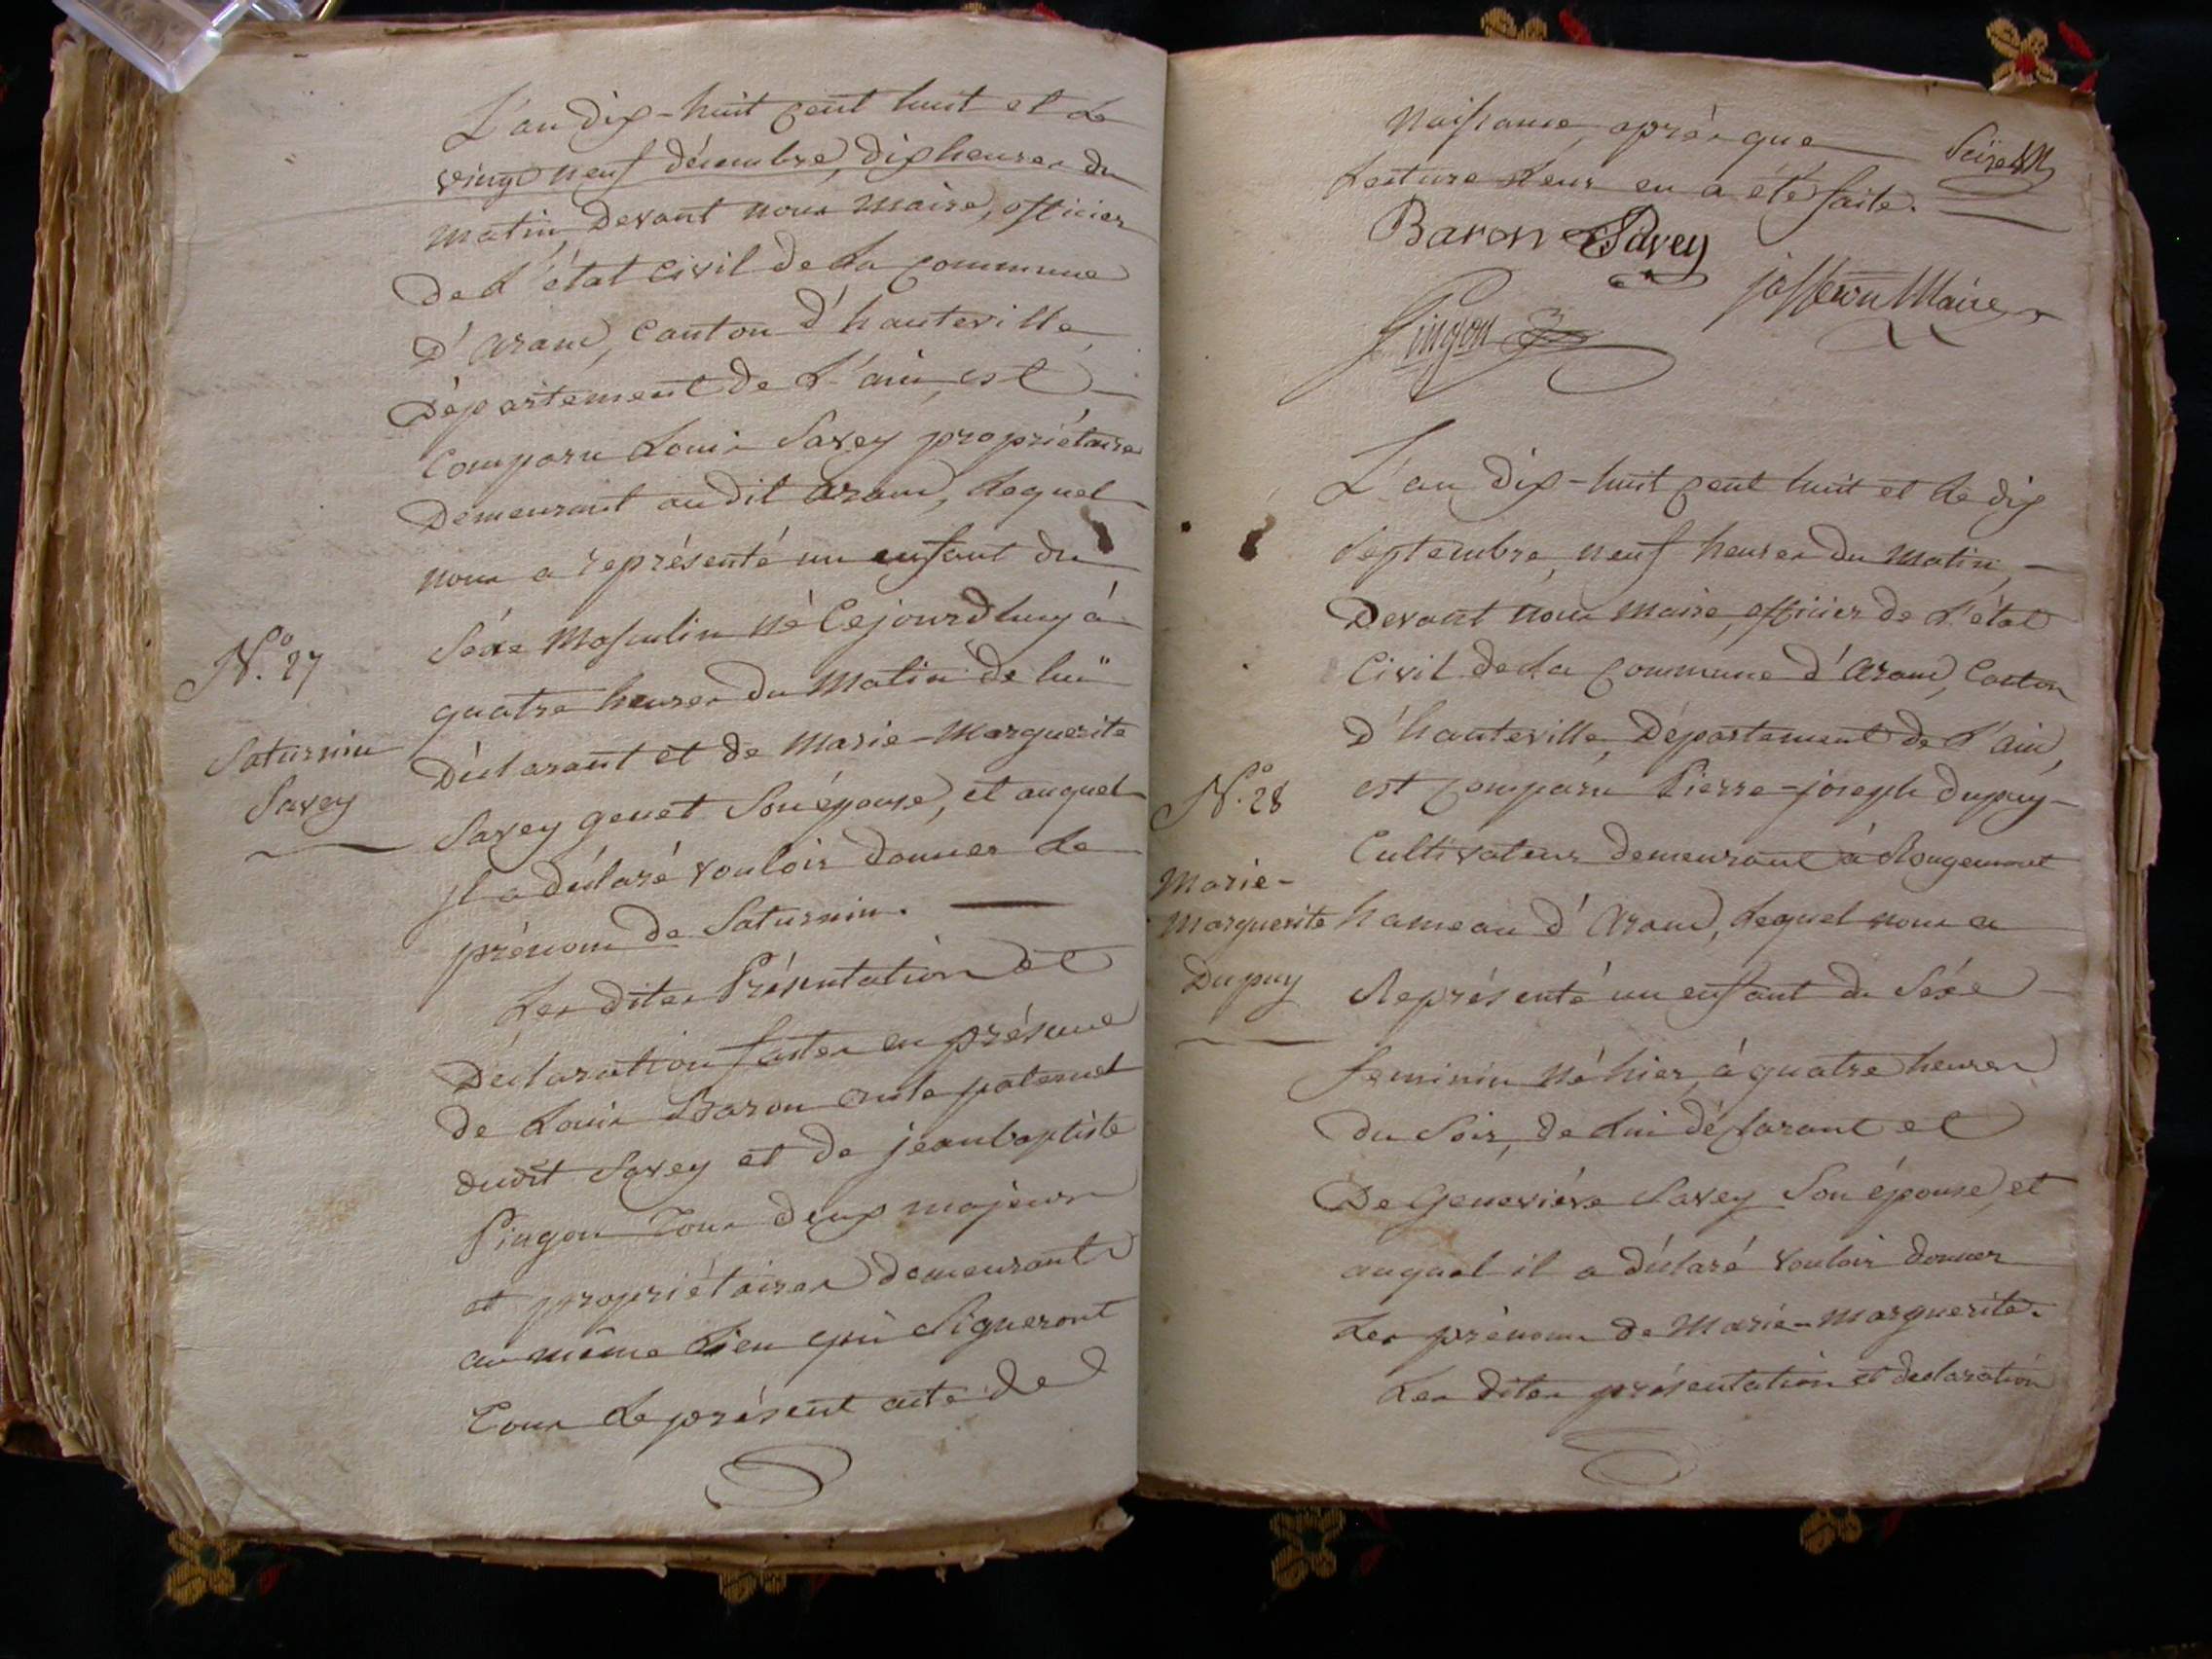 L'an dix-huit cent huit et le
vingt neuf décembre, dix heures du
matin, Devant nous Maire, officier
de l'état Civil de la commune
D'Aranc, Canton d'hauteville
Département de l'ain, est
Comparu Louis Savey propriétaire
Demeurant audit Aranc, lequel
nous a représenté un enfant du
Séxe Masculin né Cejourdhuy à
N.° 27
quatre heures du Matin de lui
Saturnin
Déclarant et de Marie-Marguerite
Savey
Savey genet Son épouse, et auquel
il a déclaré vouloir donner le
prénom de Saturnin.
Les dites Présentation et
Déclaration faites en présence
de Louis Baron oncle paternel
dudit Savey et de jeanbaptiste
Pingon Tous deux majeurs
et propriétaires demeurants
au même Lieu qui Signeront
Tous le présent acte de
Naissance, après que
Lecture Leur en a été faite.
Baron Savey
Pingon
Maire
L'an dix-huit cent huit et le dix
Septembre, neuf heures du Matin,
Devant nous Maire, officier de L'état
Civil de la Commune d'Aranc, Canton
D'hauteville, Département de L'ain,
N.° 28
est Comparu Pierre-joseph Dupuy
Cultivateur demeurant à Rougemont
Marie-
Marguerite
hameau d'Aranc, Lequel nous a
Dupuy
Représenté un enfant du Séxe
féminin né hier, à quatre heures
du Soir, de Lui déclarant et
De Geneviève Savey Son épouse, et
auquel il a déclaré vouloir donner
Les prénoms de Marie-Marguerite.
Les dites présentation et declaration